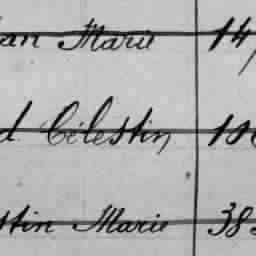 an Marie 14
d Célestin 18
tin Marie 38